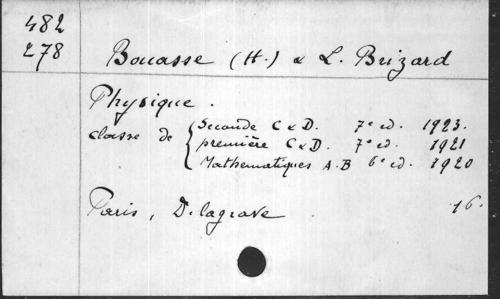 482
278
Bouasse (H.) & L. Brizard
Physique.
classe de { Seconde C & D. 7e éd. 1923.
première C & D. 7e éd. 1921
Mathematiques A.B 6e éd. 1920
Paris, Delagrave 16.